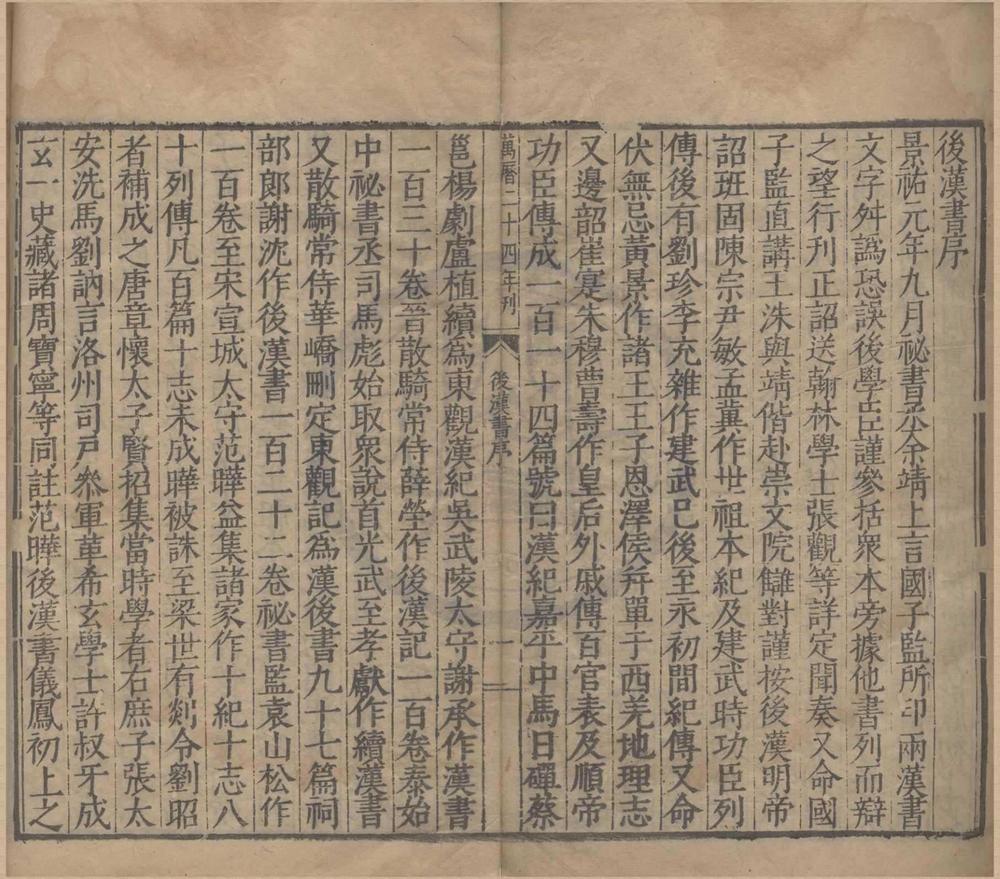 後漢書序
景祐元年九月秘書丞余靖上言國子監所印兩漢書
文字舛譌恐誤後學臣謹參括衆本旁據他書列而辯
之望行刊正詔送翰林學士張觀等詳定聞奏又命國
子監直講王洙與靖偕赴崇文院讎對謹按後漢明帝
詔班固陳宗尹敏孟冀作世祖本紀及建武時功臣列
傳後有劉珍李充雜作建武已後至永初間紀傳又命
伏無忌黃景作諸王王子恩澤侯并單于西羌地理志
又邊韶崔寔朱穆曹壽作皇后外戚傳百官表及順帝
功臣傳成一百一十四篇號曰漢紀嘉平中馬日磾蔡
萬曆二十四年刊
後漢書序
一
邕楊劇盧植續爲東觀漢紀吳武陵太守謝承作漢書
一百三十卷晉散騎常侍薛瑩作後漢記一百卷泰始
中祕書丞司馬彪始取衆說首光武至孝獻作續漢書
又散騎常侍華嶠刪定東觀記爲漢後書九十七篇祠
部郎謝沈作後漢書一百二十二卷祕書監袁山松作
一百卷至宋宣城太守范曄益集諸家作十紀十志八
十列傳凡百篇十志未成曄被誅至梁世有剡令劉昭
者補成之唐章懷太子賢招集當時學者右庶子張太
安洗馬劉訥言洛州司戶叅軍革希玄學士許叔牙成
玄一史藏諸周寶寧等同註范曄後漢書儀鳳初上之